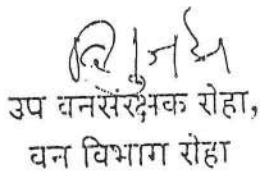 उप वनसंरक्षक रोहा,
वन विभाग रोहा